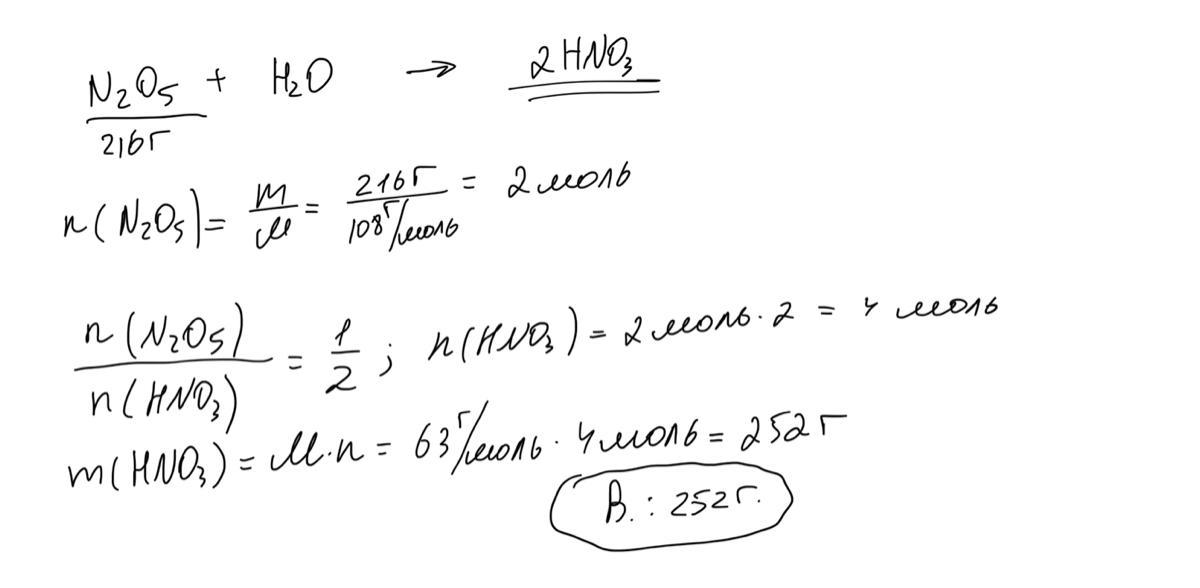 N₂O₅ + H₂O → 2HNO₃
216г
n(N₂O₅) = m/M = 216г/108г/моль = 2 моль
n(N₂O₅)/n(HNO₃) = 1/2 ; n(HNO₃) = 2 моль · 2 = 4 моль
m(HNO₃) = M · n = 63г/моль · 4 моль = 252 г
В. : 252 г.